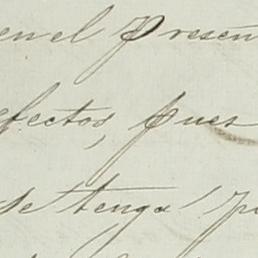 en el presen
efectos, pues
se tenga p